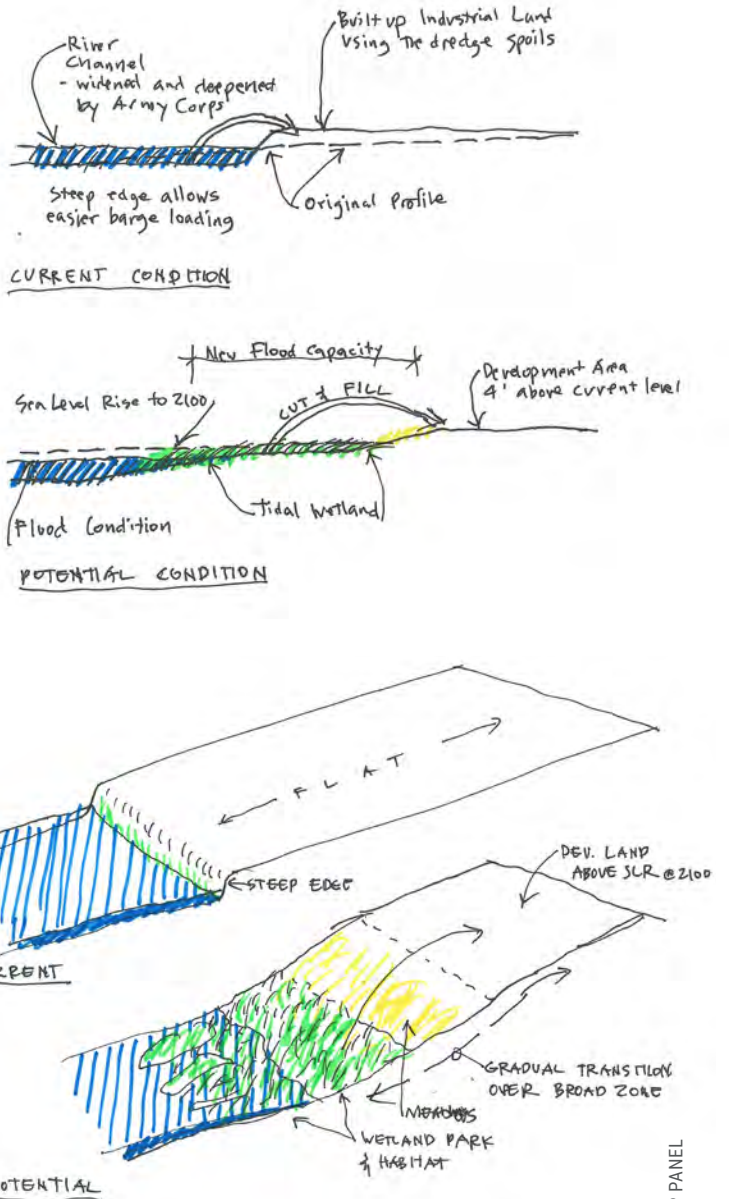 River
Channel
- widened and deepened
by Army Corps
Built up Industrial Land
Using The dredge spoils
Steep edge allows
easier barge loading
Original Profile
CURRENT CONDITION
New Flood Capacity
Sea Level Rise to 2100
CUT & FILL
Development Area
4' above current level
Flood Condition
Tidal Wetland
POTENTIAL CONDITION
FLAT
STEEP EDGE
RRENT
DEV. LAND
ABOVE SLR @ 2100
GRADUAL TRANSITION
OVER BROAD ZONE
MEADOWS
WETLAND PARK
& HABITAT
OTENTIAL
PANEL